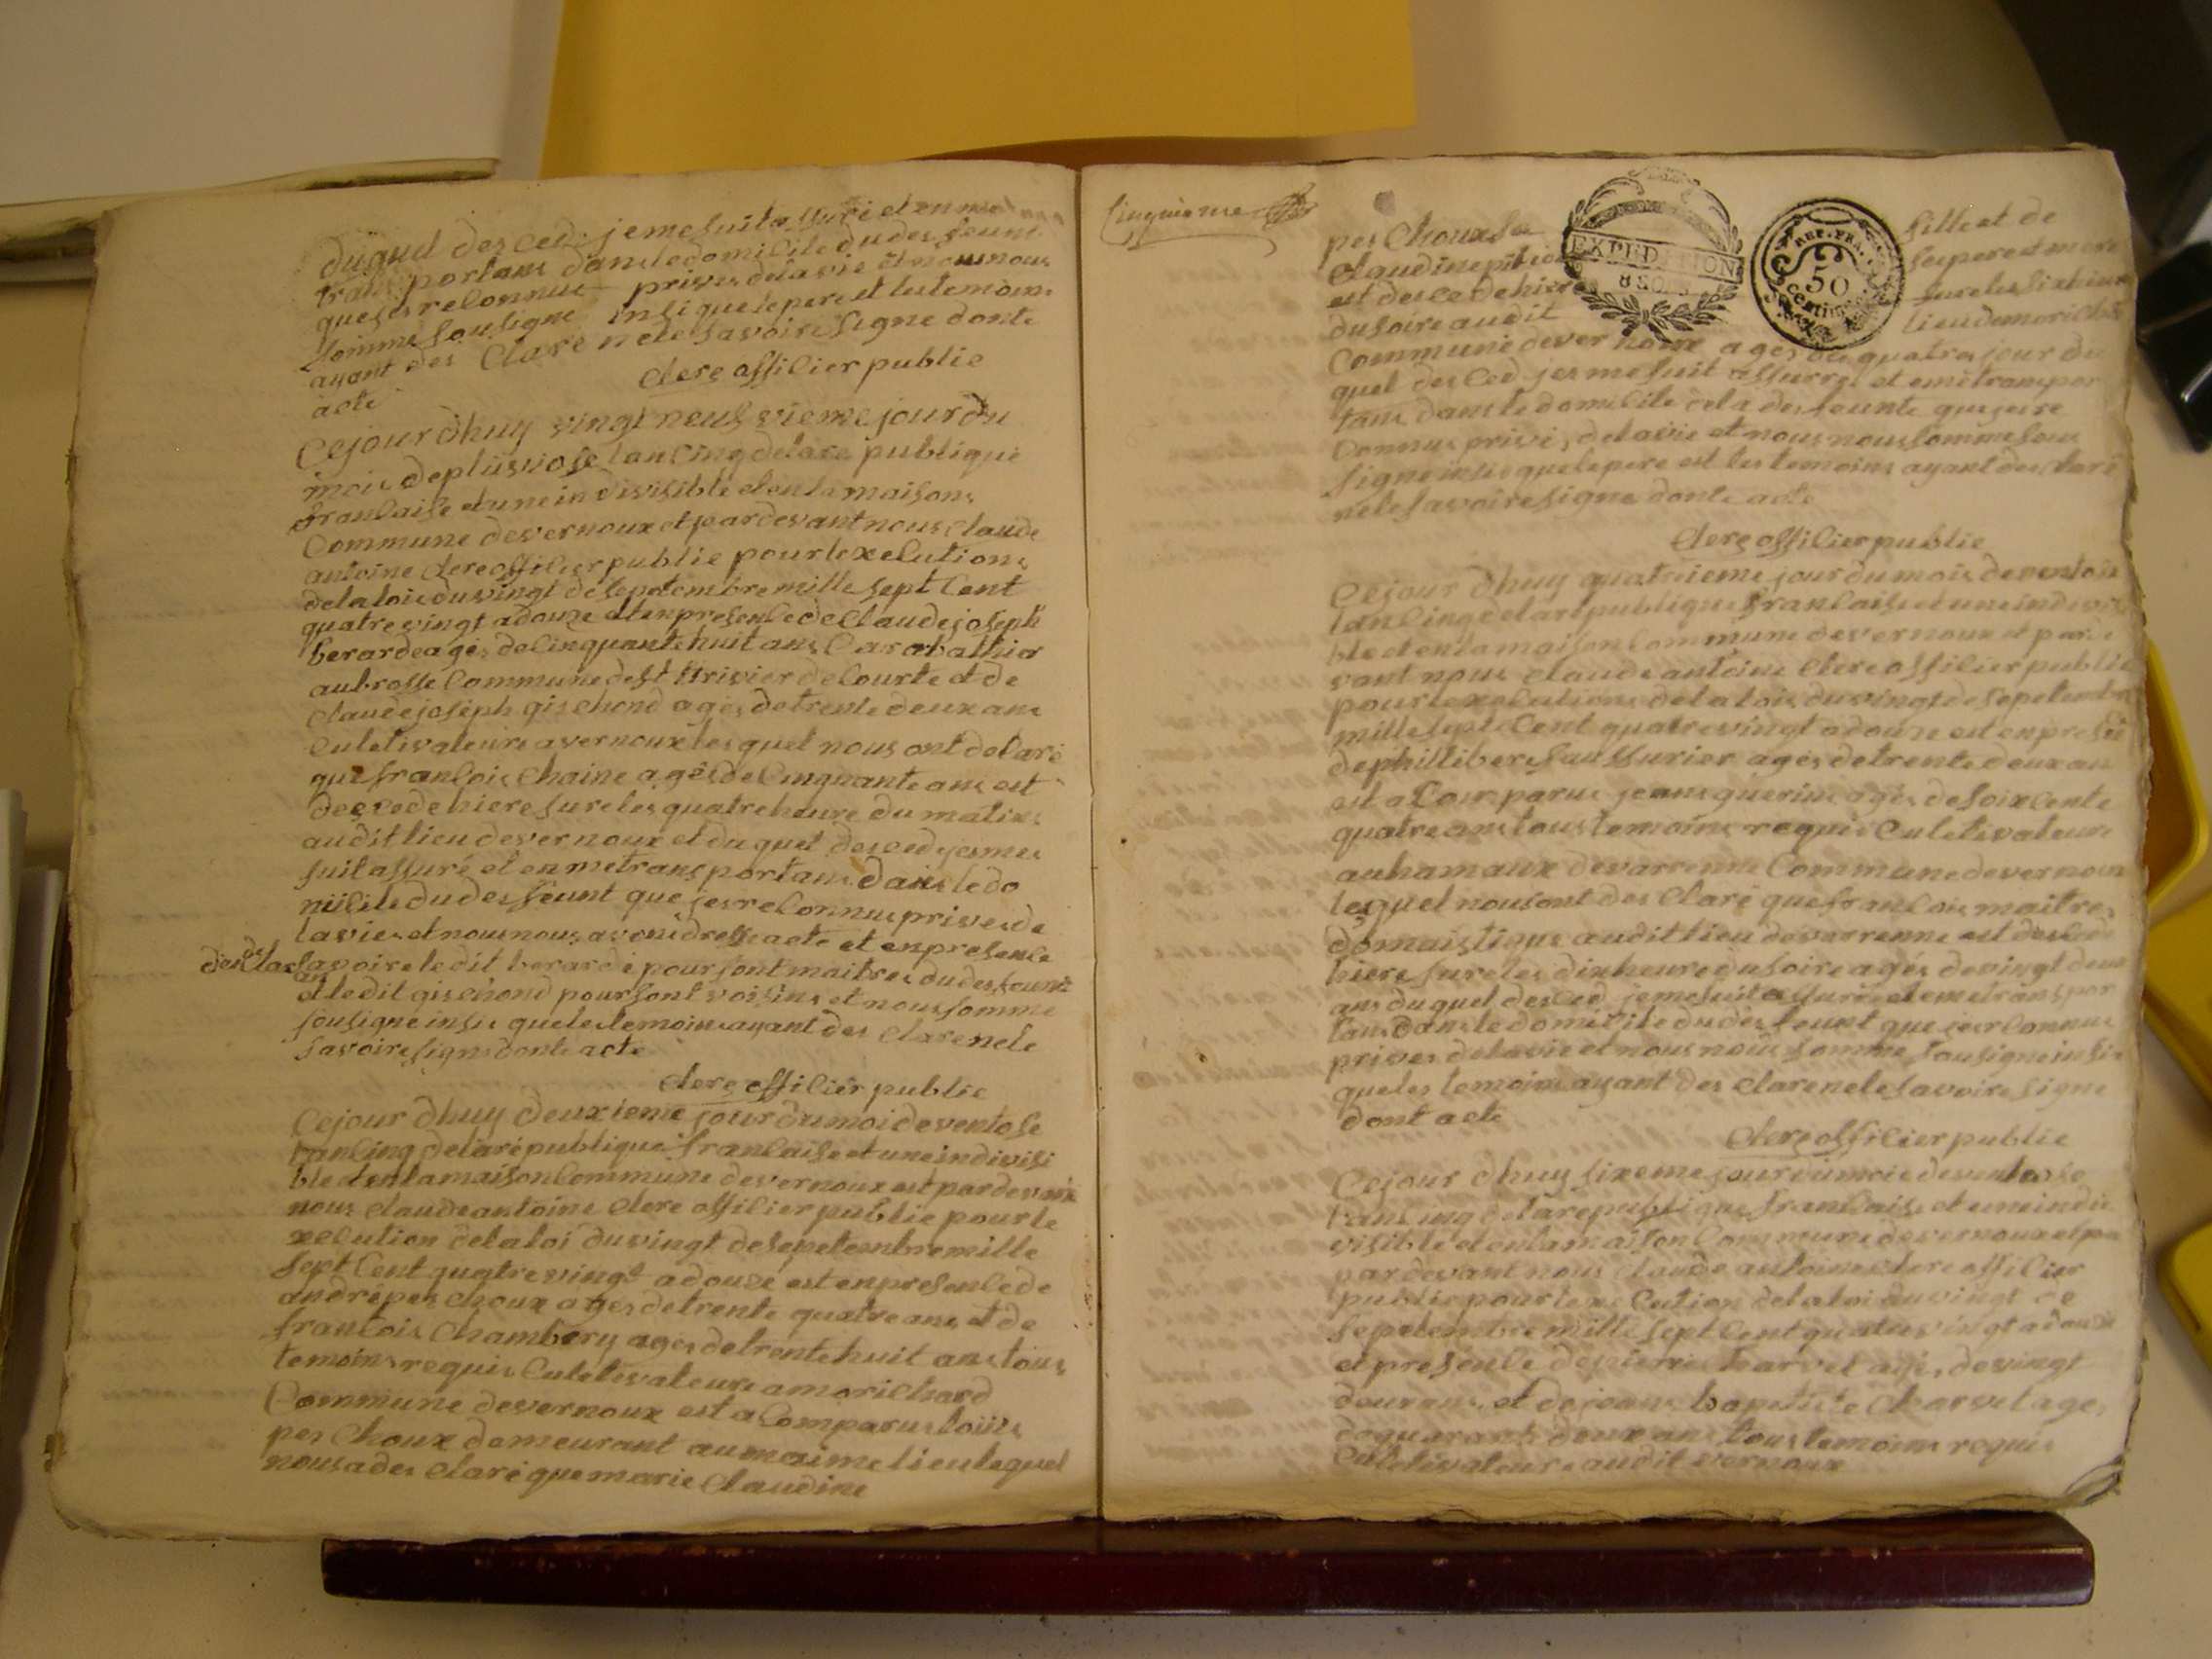 duquel des ced jemesuit assuré et en me
transportans dans le domicile du des feunt
que jes relonnue privés de la vie et nous nous
somme sousigne insi que le pere et les temoins
ayant des claré ne le savoire signe donte
acte
clerc offilier publie
Cejour dhuy vingt neufvieme jour du
mois de plusviose lan cinq de la re publique
franlaise et une in divisible et en la maisons
Commune de vernoux et par devant nous claude
antoine clerc offilier publie pour lexelutions
de la lois du vingt de sepetembre mille sept Cent
quatre vingt a douze et en presenle de claude joseph
berarde agés de linquante huit ans
au brosse Commune de st trivier de Courte et de
claude joseph gischond agés de trente deux ans
Culetivateure a vernoux les quel nous ont delaré
que franlois Chaine agés de Cinquante ans est
decede hiere sure les quatre heure du matins
au dit lieu de vernoux et du quel des ced jes me
suit assuré et en me transportans dans le do
micile du des feunt que jes relonnus privés de
la vies et nous nous avons dresse acte et en presenle
savoire le dit berarde pour sont maitres du des feunt
et le dit gischond pour sont voisins et nous somme
sousigne insi que les temoins ayant des clare ne le
savoire signe donte acte
clerc offilier publie
Cejour dhuy deuxieme jour du moi de ventose
lan linq de la republique franlaise et une indivisi
ble et en la maison Commune de vernoux est par devant
nous claude antoine clerc offilier publie pour le
xelution de la loi du vingt de sepetembre mille
sept Cent quatre vingt a douze est en presenle de
andre pes choux agés de trente quatre ans et de
franlois Chambery agés de trente huit ans tous
temoins requis Culetevateure a morichard
Commune de vernoux est a Comparus louis
pes Choux demeurant au maime lieu lequel
nous a des claré que marie Claudine
Cinquieme
pes Choux fille et de
Claudine petion se pere et mere
est des ce de hiere sure les six heure
du soire au dit lieu de morichard
EXPEDITION
REP. FRA.
50
centim
Commune de vernoux agés de quatre jour du
quel des ced jes me suit assurre et eme transpor
tans dans le domicile de la des feunte que jes re
Connus privés de la vie et nous nous somme sou
signe insi que le pere est les temoins ayant des claré
ne le savoire signe donte acte
clerc offilier publie
Cejour dhuy quatrieme jour du mois de ventose
lan linq de la republique franlaise et une indevisi
ble et en la maison Commune de vernoux et par de
vant nous claude antoine clerc offilier publie
pour lexelutions de la lois du vingt de sepetembre
mille sept Cent quatre vingt a douze est en presen
de philliber saussurier agés de trente deux an
est a Com parus jeans guerins agés de soixente
quatre ans tous temoins requis Culetivateure
au hamaux de varrenne Commune de vernoux
lequel nous ont des claré que franlois maitre
domaistique au dit lieu de varrenne est des cede
hiere sure les dix heure du soire agés de vingt deux
ans du quel des ced jeme suit assuré et eme transpor
tans dans le domicile du des feunt que jes relonnus
privés de la vie et nous nous somme sousigne insi
que les temoins ayant des clare ne le savoire signe
dont acte
clerc offilier publie
Cejour dhuy sixeme jour du mois de ventose
lan linq de la republique franlaise et une indi
visible et en la maison Commune de vernoux et
par devant nous claude antoine clere offilier
publie pour lexe Cution de la loi du vingt de
sepetembre mille sept Cent quatre vingt a douze
et presenle de pierre Charvet agé de vingt
deux ans et de jeans bapetiste Charvet agés
de quarante deux ans tous temoins requis
Culetivateure au dit vernoux